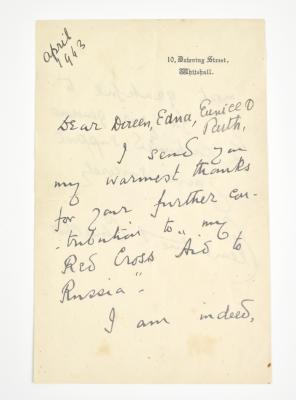 April
1943
10, Downing Street,
Whitehall.
Dear Doreen, Edna, Eunice &
Ruth,
I send you
my warmest thanks
for your further con-
-tribution to "my
Red Cross Aid to
Russia".
I am indeed,